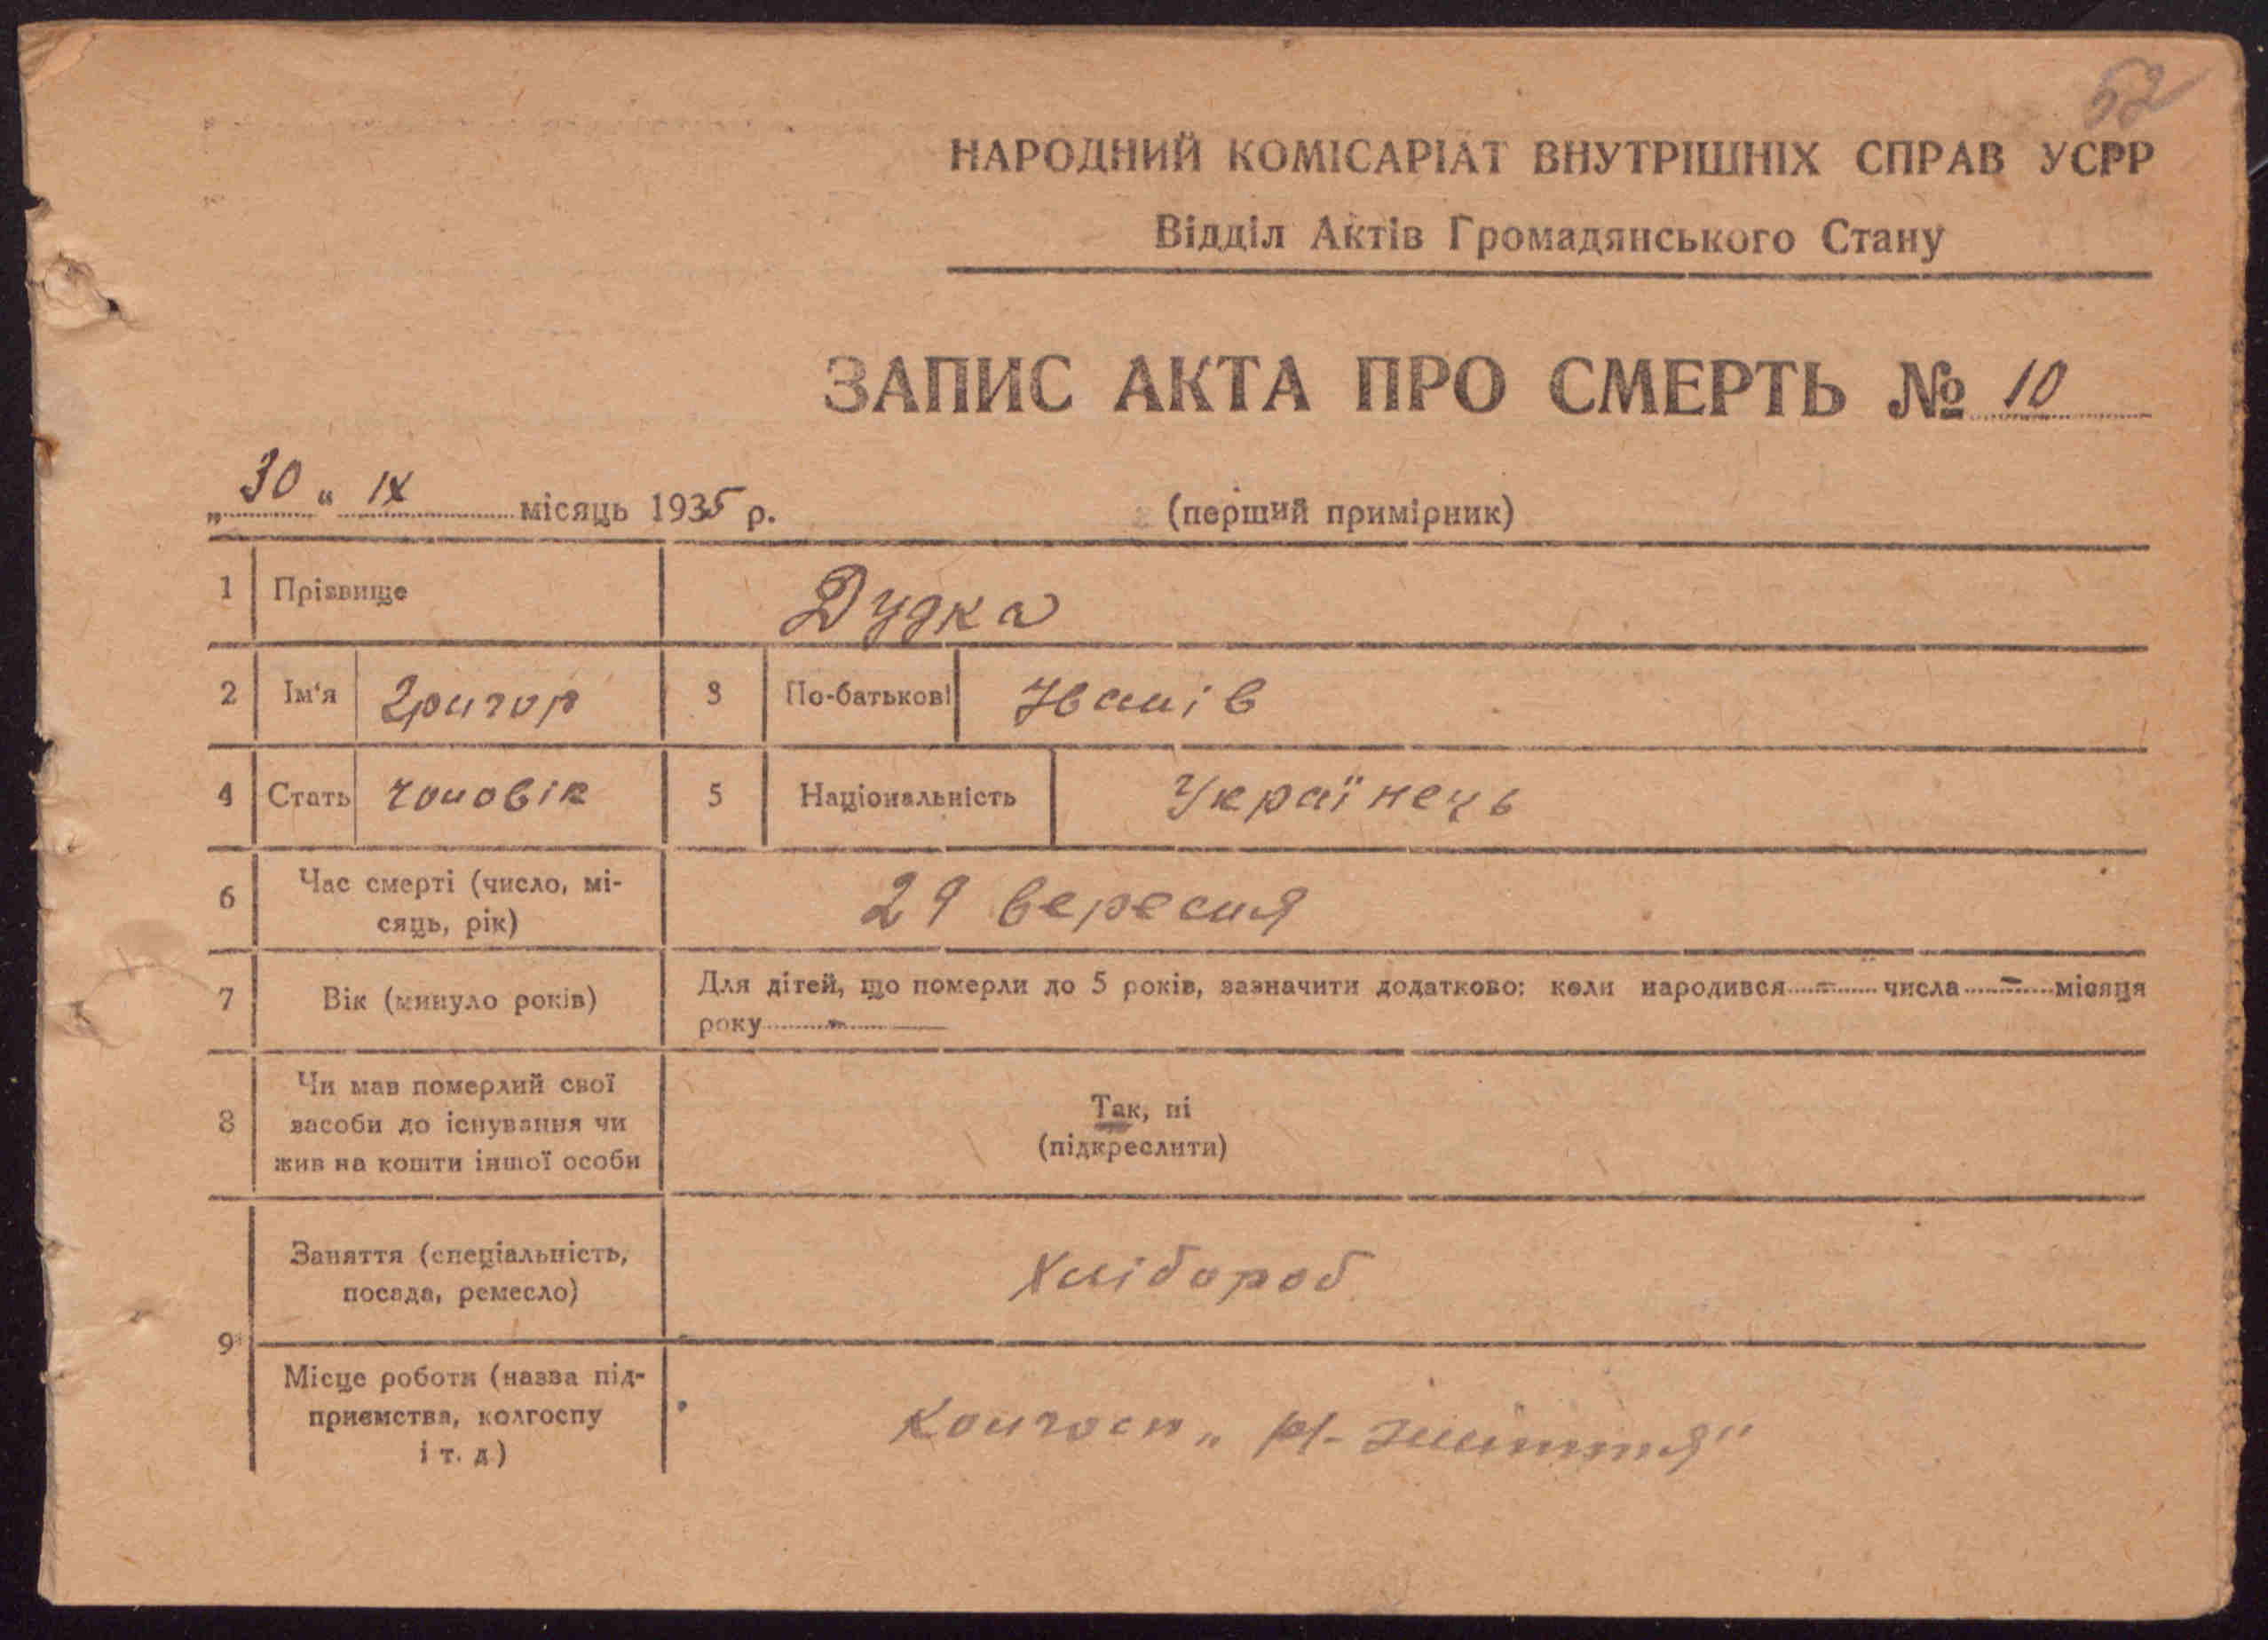 52
НАРОДНИЙ КОМІСАРІАТ ВНУТРІШНІХ СПРАВ УСРР
Відділ Актів Громадянського Стану
ЗАПИС АКТА ПРО СМЕРТЬ № 10
„30“ IX місяць 1935 р.
(перший примірник)
1 Прізвище Дудка
2 Ім'я Григор 3 По-батькові Іванів
4 Стать чоловік 5 Національність Українець
6 Час смерті (число, мі-
сяць, рік) 29 вересня
7 Вік (минуло років) Для дітей, що померли до 5 років, зазначити додатково: коли народився - числа - місяця
року -
8 Чи мав померлий свої
засоби до існування чи
жив на кошти іншої особи
Так, ні
(підкреслити)
9 Заняття (спеціальність,
посада, ремесло) Хлібороб
Місце роботи (назва під-
приємства, колгоспу
і т. д) Колгосп „Н-життя"